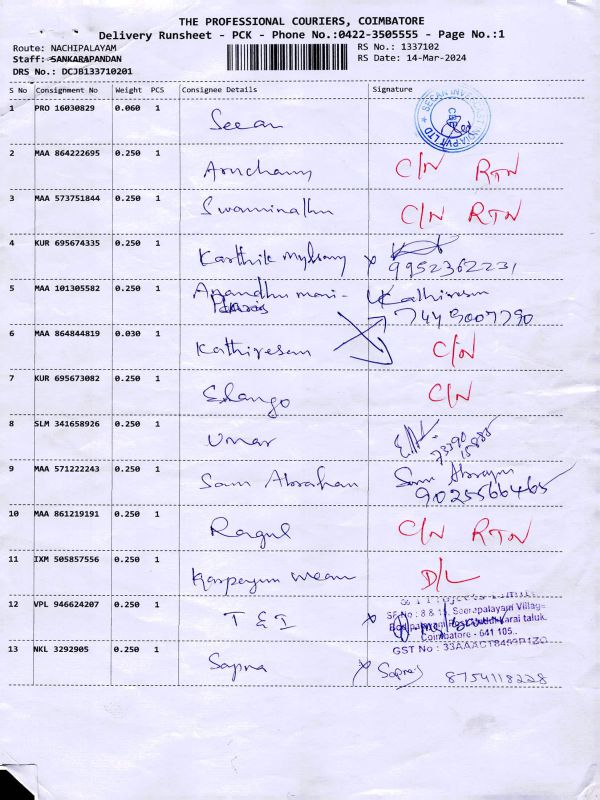 THE PROFESSIONAL COURIERS, COIMBATORE
Delivery Runsheet - PCK - Phone No.:0422-3505555 - Page No.:1
Route: NACHIPALAYAM
RS No.: 1337102
Staff: SANKARAPANDAN
RS Date: 14-Mar-2024
DRS No.: DCJB133710201
S No Consignment No Weight PCS Consignee Details Signature
1 PRO 16030829 0.060 1 Seean
2 MAA 864222695 0.250 1 Aruchamy C/N RTN
3 MAA 573751844 0.250 1 Swaminathan C/N RTN
4 KUR 695674335 0.250 1 Karthik mylsamy x
9952362231
5 MAA 101305582 0.250 1 Anandhu mani- Kathiresan
6 MAA 864844819 0.030 1 Kathiresan C/N
7 KUR 695673082 0.250 1 Elango C/N
8 SLM 341658926 0.250 1 Umar
9 MAA 571222243 0.250 1 Sam Abraham Sam
9025566465
10 MAA 861219191 0.250 1 Ragul C/N RTN
11 IXM 505857556 0.250 1 D/L
12 VPL 946624207 0.250 1 T & I x
SF No : 8 & 10, Seerapalayam Village
Coimbatore - 641 105.
13 NKL 3292905 0.250 1 Sapna x 8754118228